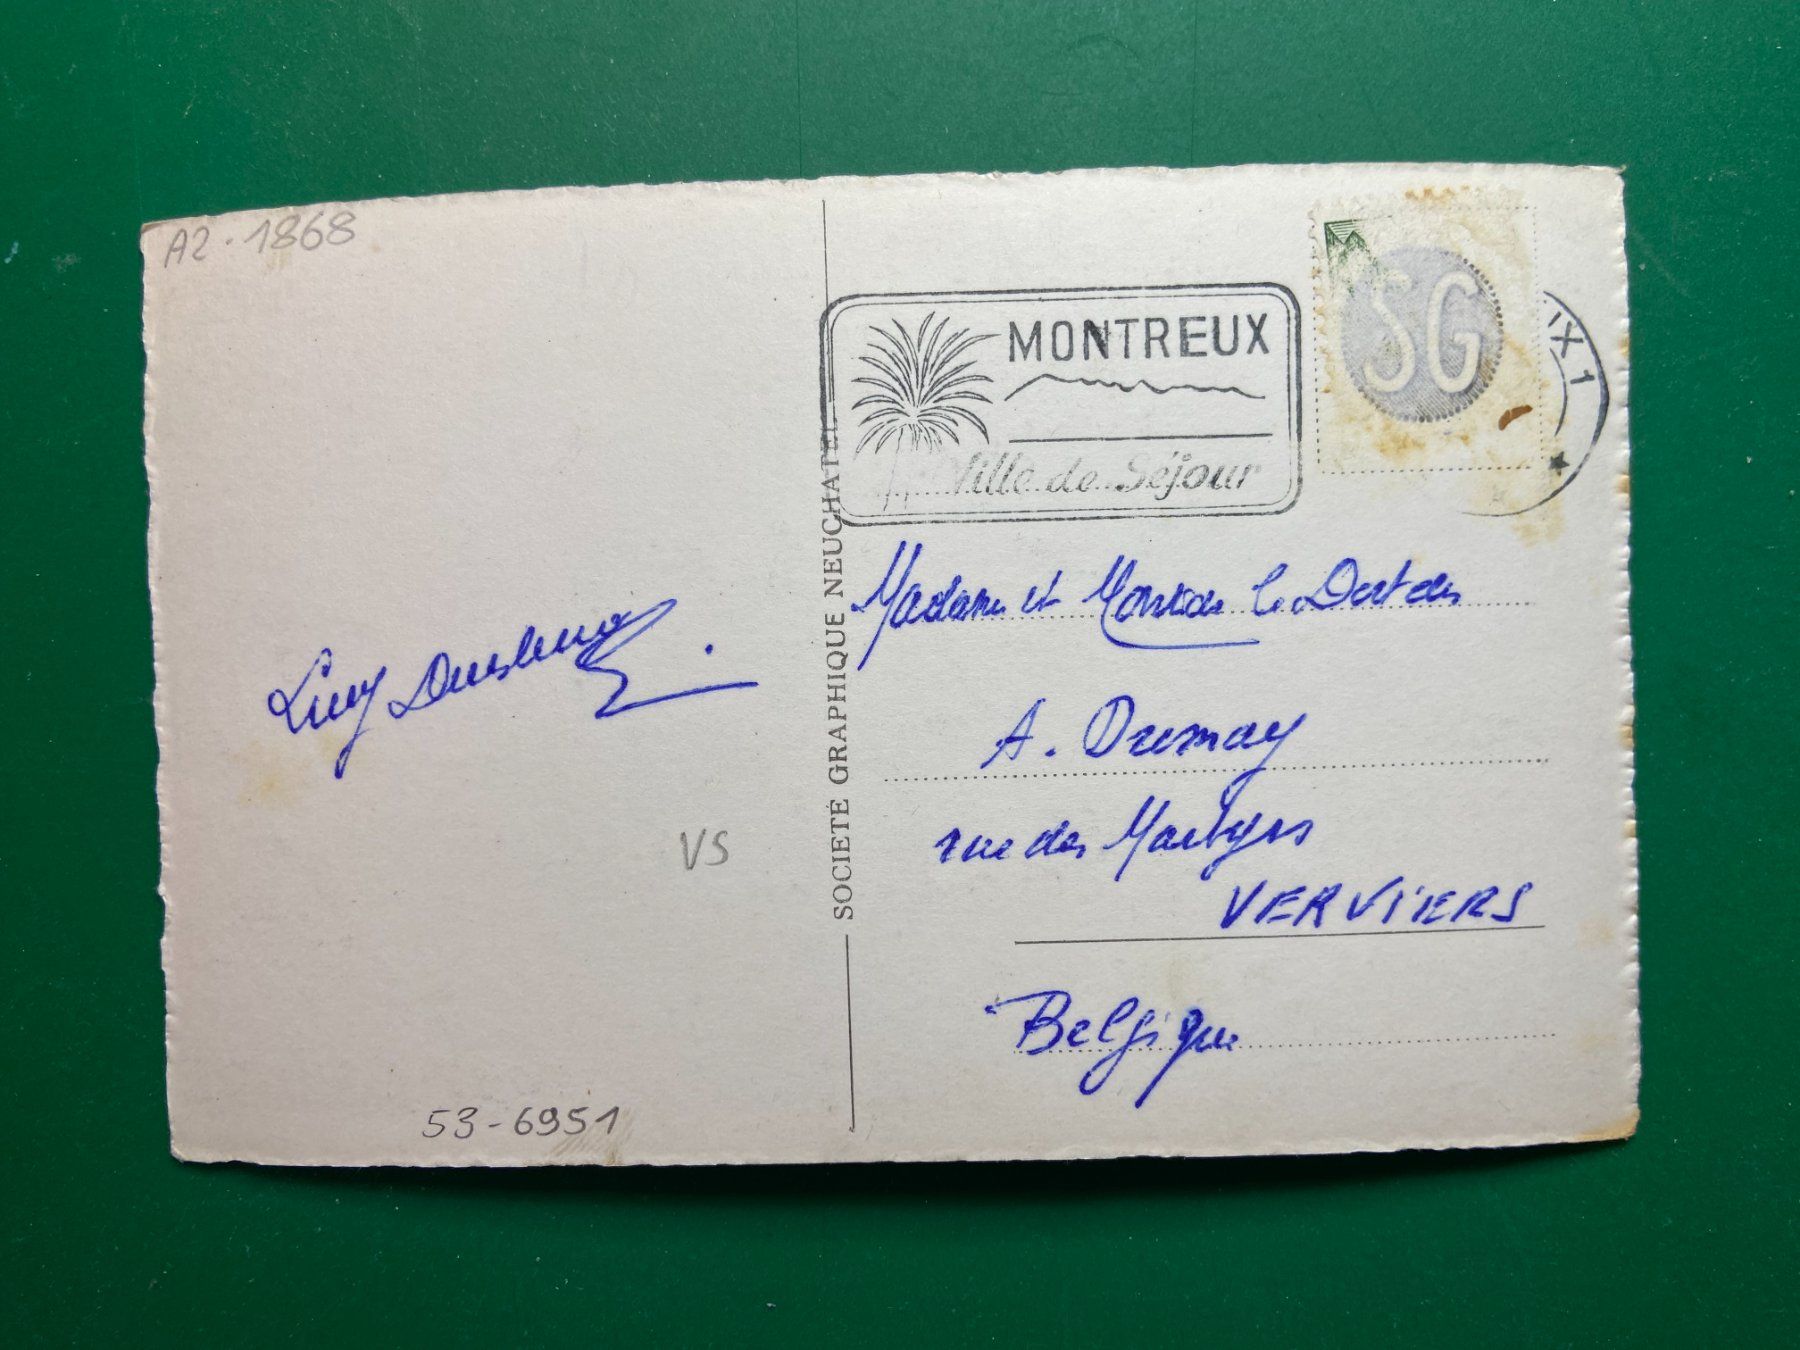 A2.1868
MONTREUX
Ville de Séjour
SG
IX 1
SOCIETÉ GRAPHIQUE NEUCHATEL
Madame et
A. Dumay
rue des Martyrs
VERVIERS
Belgique
Lucy
VS
53-6951